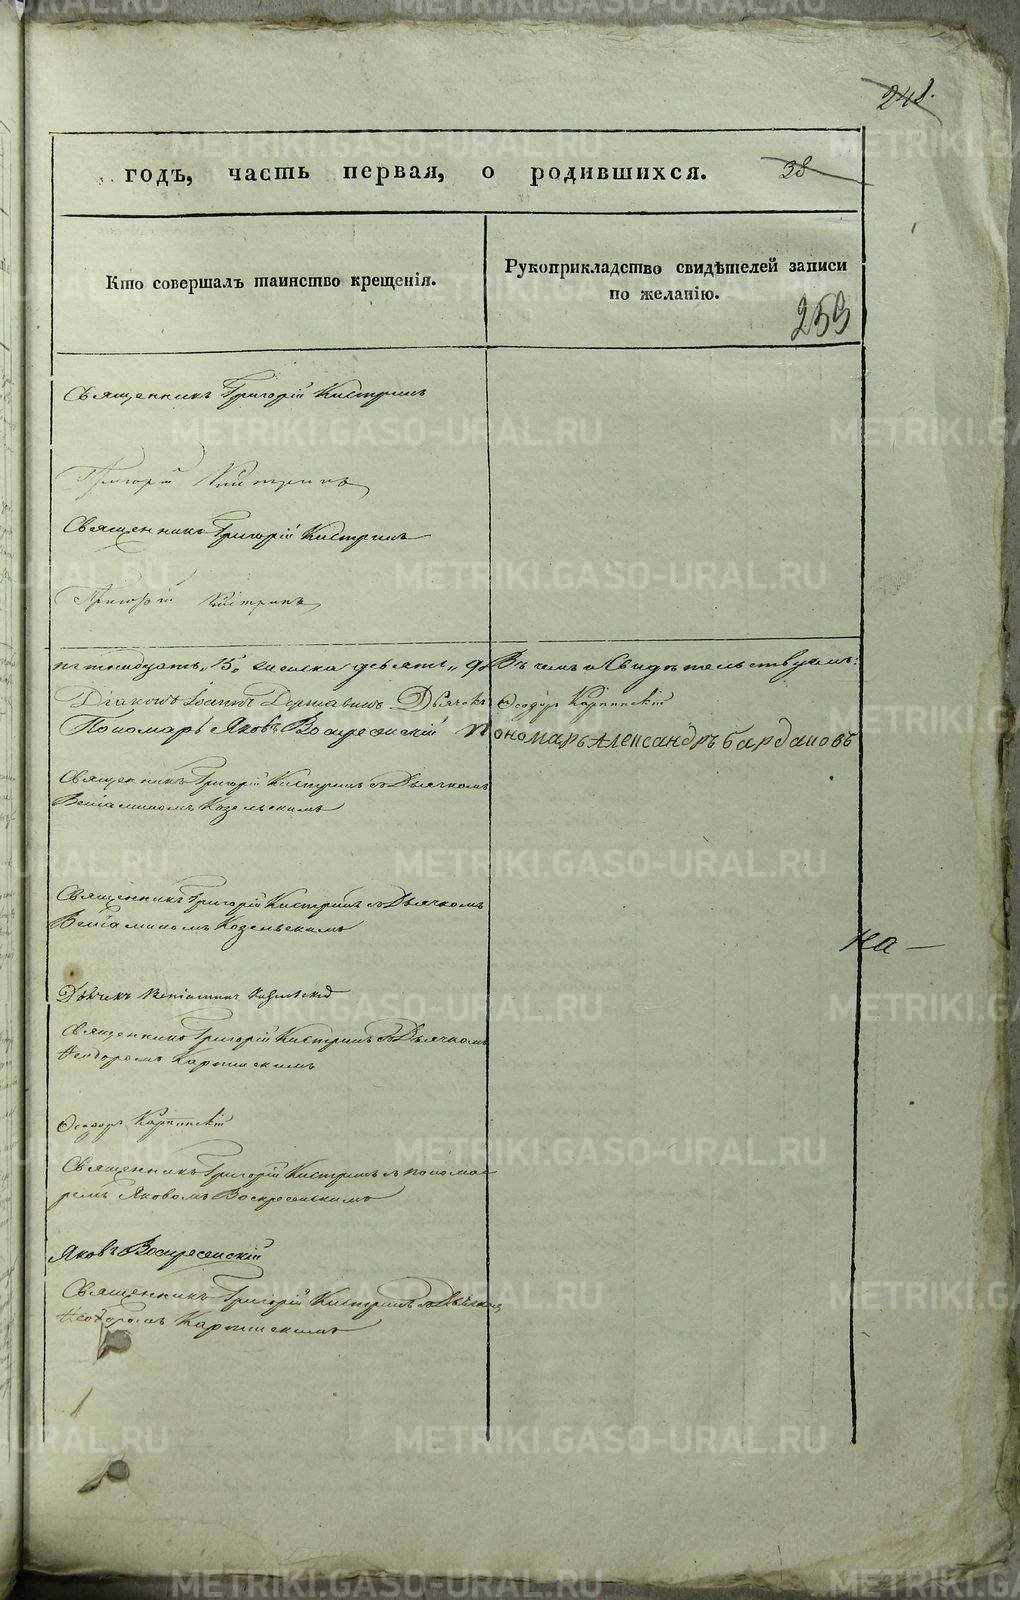 248.
годъ, часть первая, о родившихся. 38
Кто совершалъ таинство крещенія.
Рукоприкладство свидѣтелей записи
по желанію.
259
Священникъ Григорій Кистринъ
Григорій Кистринъ
Священникъ Григорій Кистринъ
Григорій Кистринъ
пятнадцать „15„ женска девять „9„ Въ чемъ и Свидѣтельствуемъ:
Діаконъ Іоаннъ Державинъ Дьячекъ Ѳеодоръ Карпинскій
Пономарь Яковъ Воскресенскій Пономарь Александръ Бардановъ
Священникъ Григорій Кистринъ съ Дьячкомъ
Веніаминомъ Козельскимъ
Священникъ Григорій Кистринъ съ Дьячкомъ
Веніаминомъ Козельскимъ
на —
Дьячекъ Веніаминъ Козельскій
Священникъ Григорій Кистринъ съ Дьячкомъ
Ѳеодоромъ Карпинскимъ
Ѳеодоръ Карпинскій
Священникъ Григорій Кистринъ съ понома-
ремъ Яковомъ Воскресенскимъ
Яковъ Воскресенскій
Священникъ Григорій Кистринъ съ Дьячкомъ
Ѳеодоромъ Карпинскимъ
METRIKI.GASO-URAL.RU